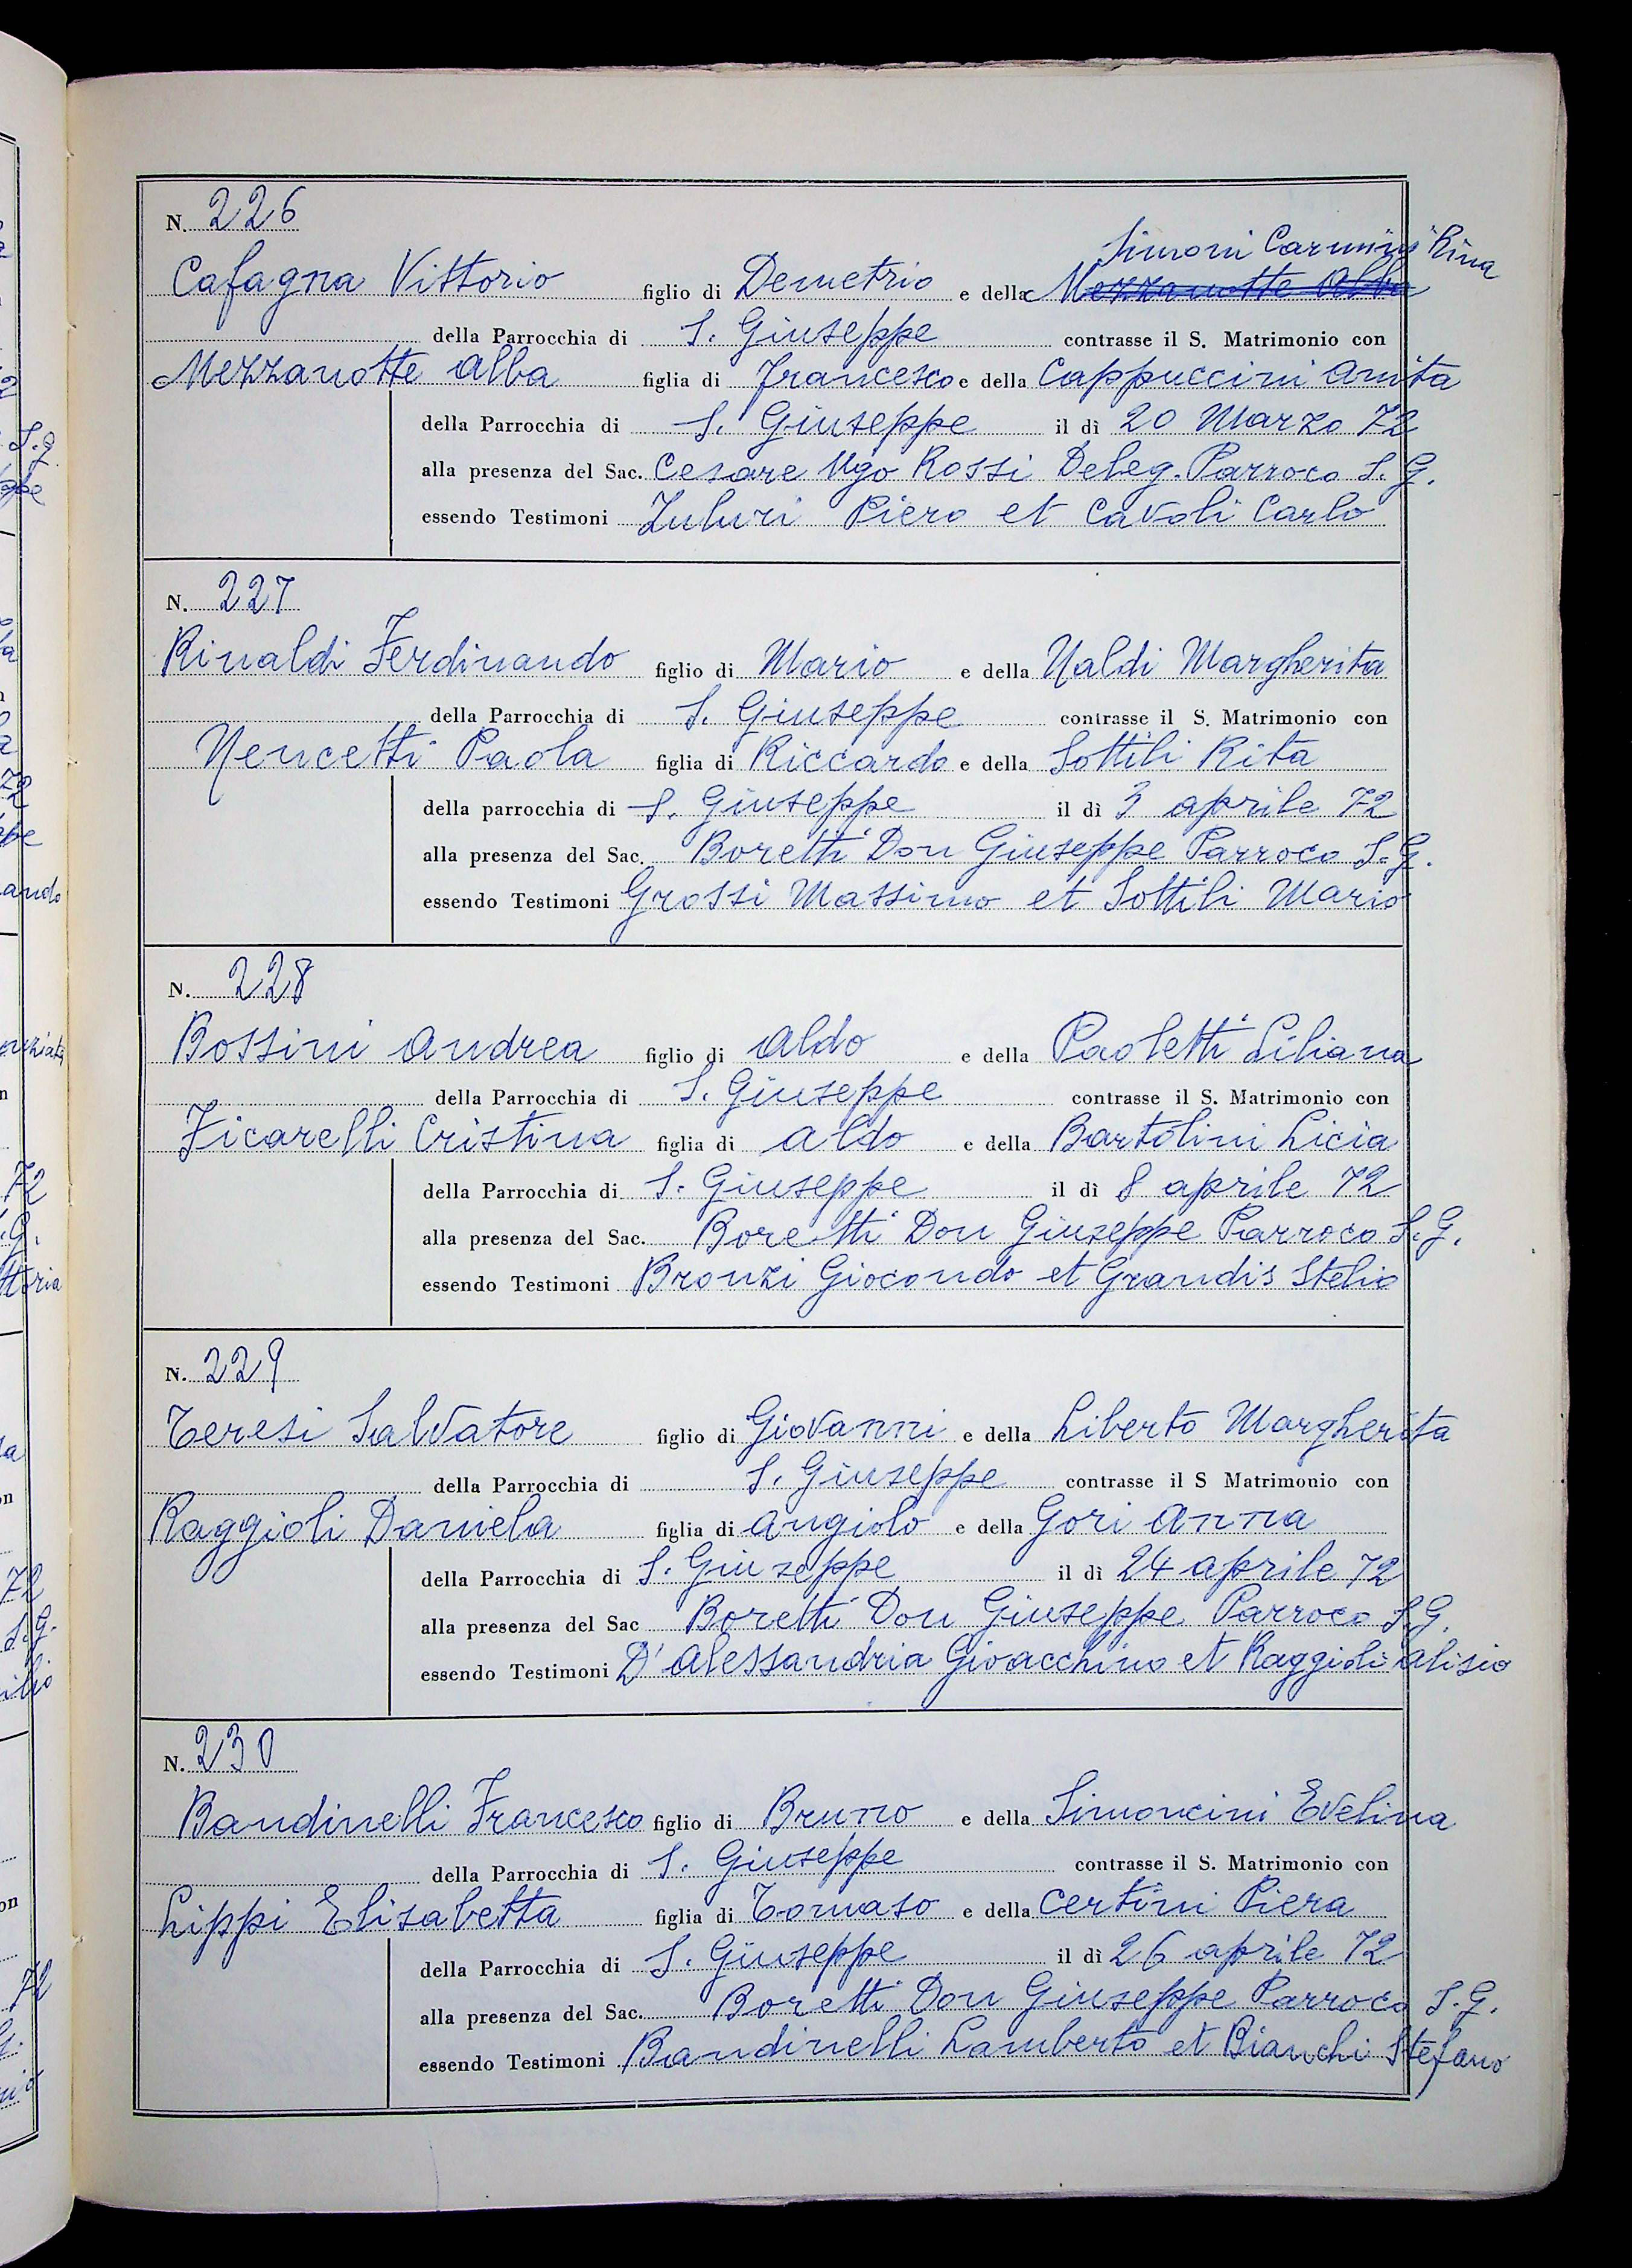 N. 226
Simoni Carmini Rina
Cafagna Vittorio figlio di Demetrio e della Mezzanotte Alba
della Parrocchia di S. Giuseppe contrasse il S. Matrimonio con
Mezzanotte Alba figlia di Francesco e della Cappuccini Anita
della Parrocchia di S. Giuseppe il dì 20 Marzo 72
alla presenza del Sac. Cesare Ugo Rossi Deleg. Parroco S. G.
essendo Testimoni Piero et Cavoli Carlo
N. 227
Rinaldi Ferdinando figlio di Mario e della Naldi Margherita
della Parrocchia di S. Giuseppe contrasse il S. Matrimonio con
Nencetti Paola figlia di Riccardo e della Sottili Rita
della parrocchia di S. Giuseppe il dì 3 aprile 72
alla presenza del Sac. Boretti Don Giuseppe Parroco S. G.
essendo Testimoni Grossi Massimo et Sottili Mario
N. 228
Bossini Andrea figlio di Aldo e della Paoletti Liliana
della Parrocchia di S. Giuseppe contrasse il S. Matrimonio con
Ficarelli Cristina figlia di Aldo e della Bartolini Licia
della Parrocchia di S. Giuseppe il dì 8 aprile 72
alla presenza del Sac. Boretti Don Giuseppe Parroco S. G.
essendo Testimoni Bronzi Giocondo et Grandis Stelio
N. 229
Teresi Salvatore figlio di Giovanni e della Liberto Margherita
della Parrocchia di S. Giuseppe contrasse il S Matrimonio con
Raggioli Daniela figlia di Angiolo e della Gori Anna
della Parrocchia di S. Giuseppe il dì 24 aprile 72
alla presenza del Sac Boretti Don Giuseppe Parroco S. G.
essendo Testimoni D'Alessandria Gioacchino et Raggioli Alisio
N. 230
Bandinelli Francesco figlio di Bruno e della Simoncini Evelina
della Parrocchia di S. Giuseppe contrasse il S. Matrimonio con
Lippi Elisabetta figlia di Tomaso e della Certini Piera
della Parrocchia di S. Giuseppe il dì 26 aprile 72
alla presenza del Sac. Boretti Don Giuseppe Parroco S. G.
essendo Testimoni Bandinelli Lamberto et Bianchi Stefano